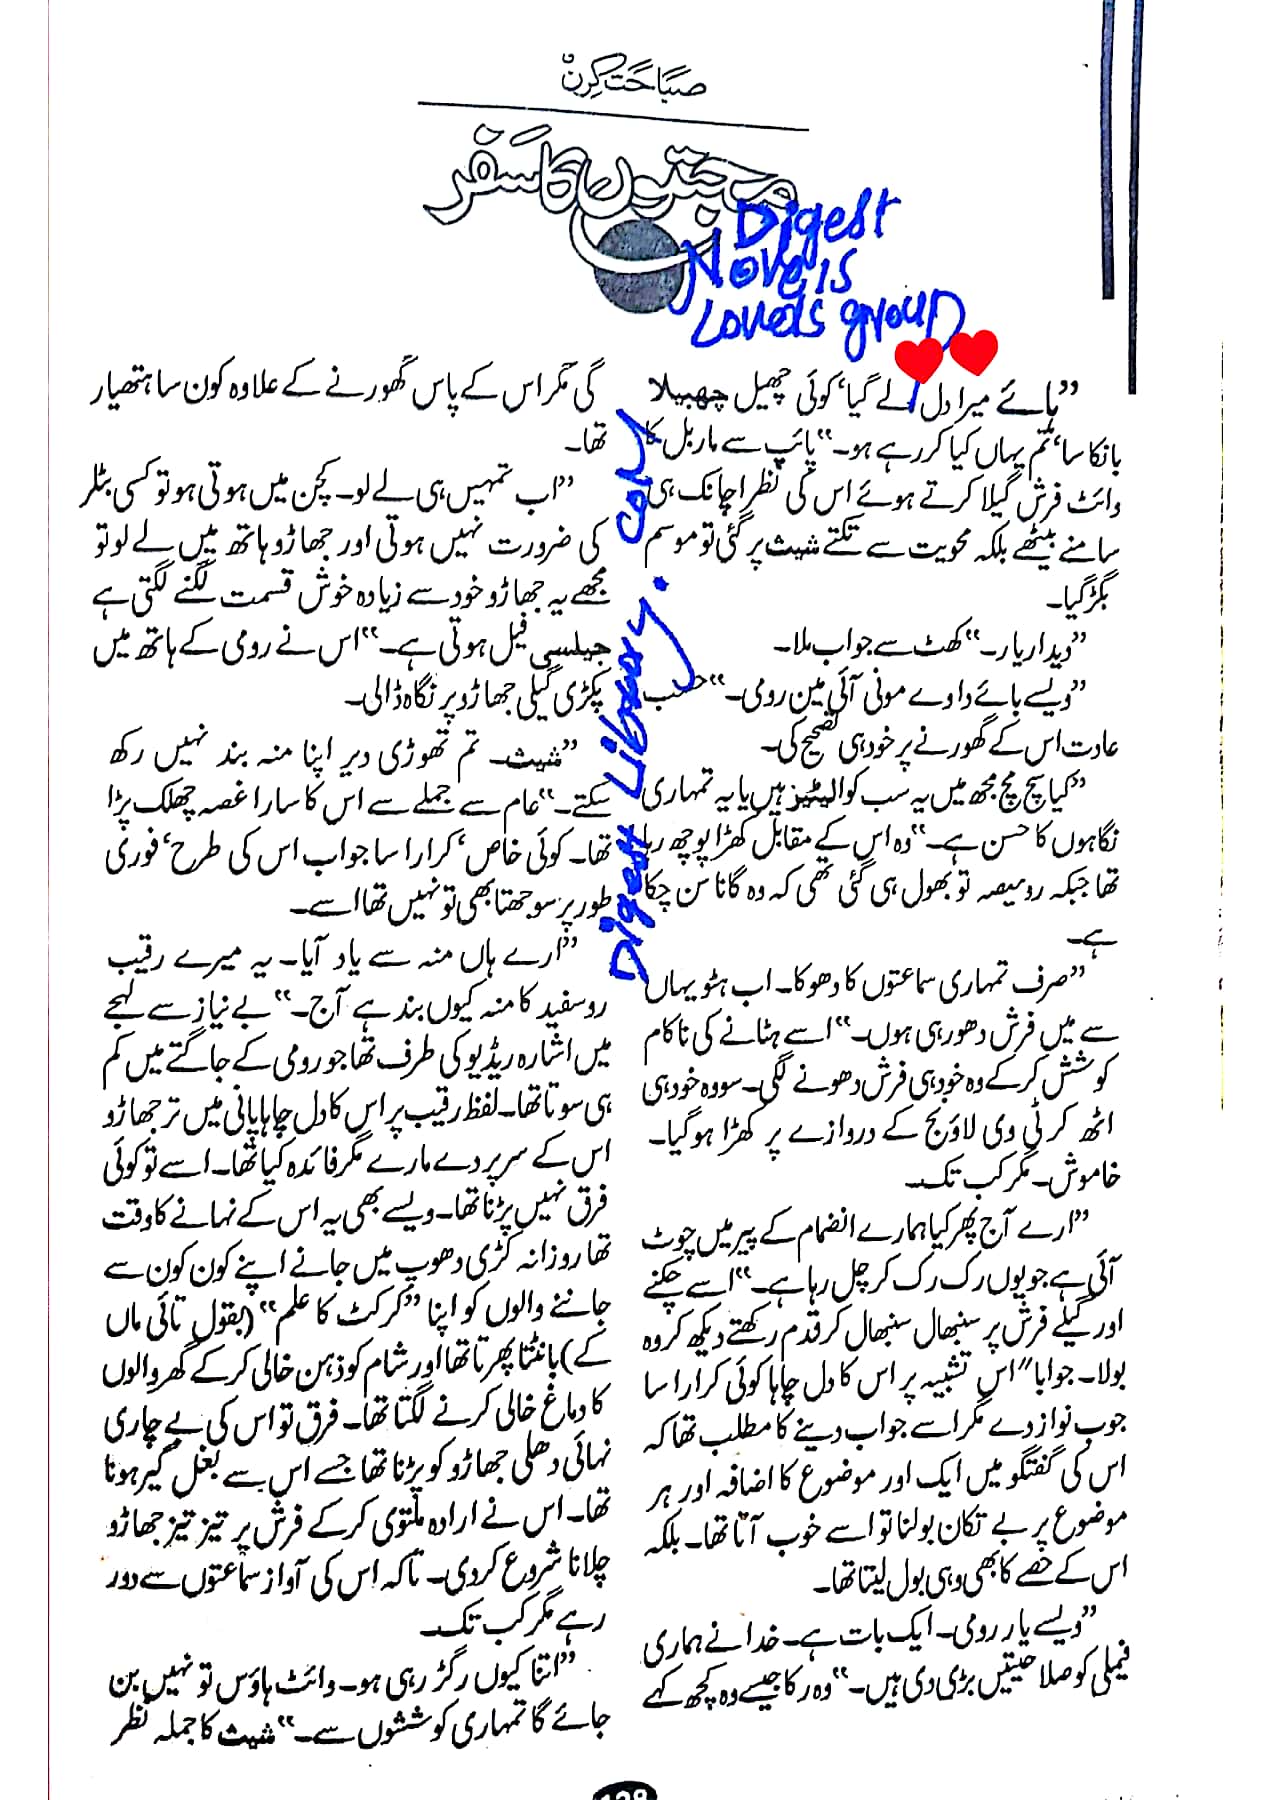 صباحت کرن
محبتوں کا سفر
Digest
Novels
Lovers group
Digest Library.com
”ہائے میرا دل لے گیا‘ کوئی چھیل چھبیلا
بانکا سا‘ تم یہاں کیا کر رہے ہو۔“ پائپ سے ماربل کا
وائٹ فرش گیلا کرتے ہوئے اس کی نظر اچانک ہی
سامنے بیٹھے بلکہ محویت سے تکتے شیث پر گئی تو موسم
بگڑ گیا۔
”دیدار یار۔“ کھٹ سے جواب ملا۔
”ویسے بائے داوے مونی آئی مین رومی۔“ حسب
عادت اس کے گھورنے پر خود ہی تصحیح کی۔
”کیا سچ مچ مجھ میں یہ سب کوالیٹیز ہیں یا یہ تمہاری
نگاہوں کا حسن ہے۔“ وہ اس کے مقابل کھڑا پوچھ رہا
تھا جبکہ رومیصہ تو بھول ہی گئی تھی کہ وہ گانا سن چکا
ہے۔
”صرف تمہاری سماعتوں کا دھوکا۔ اب ہٹو یہاں
سے میں فرش دھو رہی ہوں۔“ اسے ہٹانے کی ناکام
کوشش کر کے وہ خود ہی فرش دھونے لگی۔ سو وہ خود ہی
اٹھ کر ٹی وی لاؤنج کے دروازے پر کھڑا ہو گیا۔
خاموش۔ مگر کب تک۔
”ارے آج پھر کیا ہمارے انضمام کے پیر میں چوٹ
آئی ہے جو یوں رک رک کر چل رہا ہے۔“ اسے چکنے
اور گیلے فرش پر سنبھال سنبھال کر قدم رکھتے دیکھ کر وہ
بولا۔ جوابا″ اس تشبیہ پر اس کا دل چاہا کوئی کرارا سا
جوب نواز دے مگر اسے جواب دینے کا مطلب تھا کہ
اس کی گفتگو میں ایک اور موضوع کا اضافہ اور ہر
موضوع پر بے تکان بولنا تو اسے خوب آتا تھا۔ بلکہ
اس کے حصے کا بھی وہی بول لیتا تھا۔
”ویسے یار رومی۔ ایک بات ہے۔ خدا نے ہماری
فیملی کو صلاحیتیں بڑی دی ہیں۔“ وہ رکا جیسے وہ کچھ کہے
گی مگر اس کے پاس گھورنے کے علاوہ کون سا ہتھیار
تھا۔
”اب تمہیں ہی لے لو۔ کچن میں ہوتی ہو تو کسی بٹلر
کی ضرورت نہیں ہوتی اور جھاڑو ہاتھ میں لے لو تو
مجھے یہ جھاڑو خود سے زیادہ خوش قسمت لگنے لگتی ہے
جیلسی فیل ہوتی ہے۔“ اس نے رومی کے ہاتھ میں
پکڑی گیلی جھاڑو پر نگاہ ڈالی۔
”شیث۔ تم تھوڑی دیر اپنا منہ بند نہیں رکھ
سکتے۔“ عام سے جملے سے اس کا سارا غصہ چھلک پڑا
تھا۔ کوئی خاص‘ کرارا سا جواب اس کی طرح‘ فوری
طور پر سوجھتا بھی تو نہیں تھا اسے۔
”ارے ہاں منہ سے یاد آیا۔ یہ میرے رقیب
روسفید کا منہ کیوں بند ہے آج۔“ بے نیاز سے لہجے
میں اشارہ ریڈیو کی طرف تھا جو رومی کے جاگتے میں کم
ہی سوتا تھا۔ لفظ رقیب پر اس کا دل چاہا پانی میں تر جھاڑو
اس کے سر پر دے مارے مگر فائدہ کیا تھا۔ اسے تو کوئی
فرق نہیں پڑنا تھا۔ ویسے بھی یہ اس کے نہانے کا وقت
تھا روزانہ کڑی دھوپ میں جانے اپنے کون کون سے
جاننے والوں کو اپنا ”کرکٹ کا علم“ (بقول تائی ماں
کے) بانٹتا پھرتا تھا اور شام کو ذہن خالی کر کے گھر والوں
کا دماغ خالی کرنے لگتا تھا۔ فرق تو اس کی بے چاری
نہائی دھلی جھاڑو کو پڑنا تھا جسے اس سے بغل گیر ہونا
تھا۔ اس نے ارادہ ملتوی کر کے فرش پر تیز تیز جھاڑو
چلانا شروع کر دی۔ تاکہ اس کی آواز سماعتوں سے دور
رہے مگر کب تک۔
”اتنا کیوں رگڑ رہی ہو۔ وائٹ ہاؤس تو نہیں بن
جائے گا تمہاری کوششوں سے۔“ شیث کا جملہ نظر